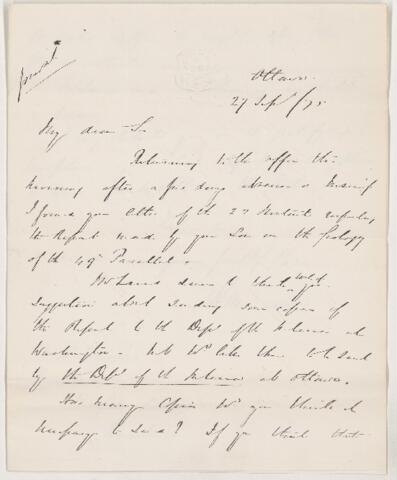 Private
Ottawa
27 Sept /75
My dear Sir
Returning to the office this
morning after a few days absence in
I found your letter of the 22 Instant respecting
the Report made by your Son on the Geology
of the 49th Parallel.
Mr Laird desires to thank you for
suggestion about sending some copies of
the Report to the Dept of the Interior at
Washington. He wd like them to be sent
by the Dept of the Interior at Ottawa.
How many Copies wd you think it
necessary to send? If you think that